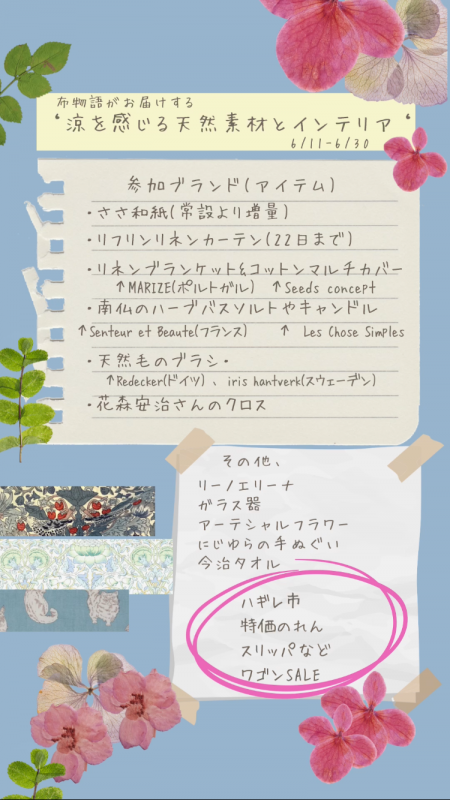 布物語がお届けする
‘涼を感じる天然素材とインテリア‘
6/11-6/30
参加ブランド(アイテム)
・ささ和紙(常設より増量)
・リフリンリネンカーテン(22日まで)
・リネンブランケット&コットンマルチカバー
↑MARIZE(ポルトガル) ↑Seeds concept
・南仏のハーブバスソルトやキャンドル
↑Senteur et Beaute(フランス) ↑ Les Chose Simples
・天然毛のブラシ・
↑Redecker(ドイツ)、iris hantverk(スウェーデン)
・花森安治さんのクロス
その他、
リーノエリーナ
ガラス器
アーテシャルフラワー
にじゆらの手ぬぐい
今治タオル
ハギレ市
特価のれん
スリッパなど
ワゴンSALE